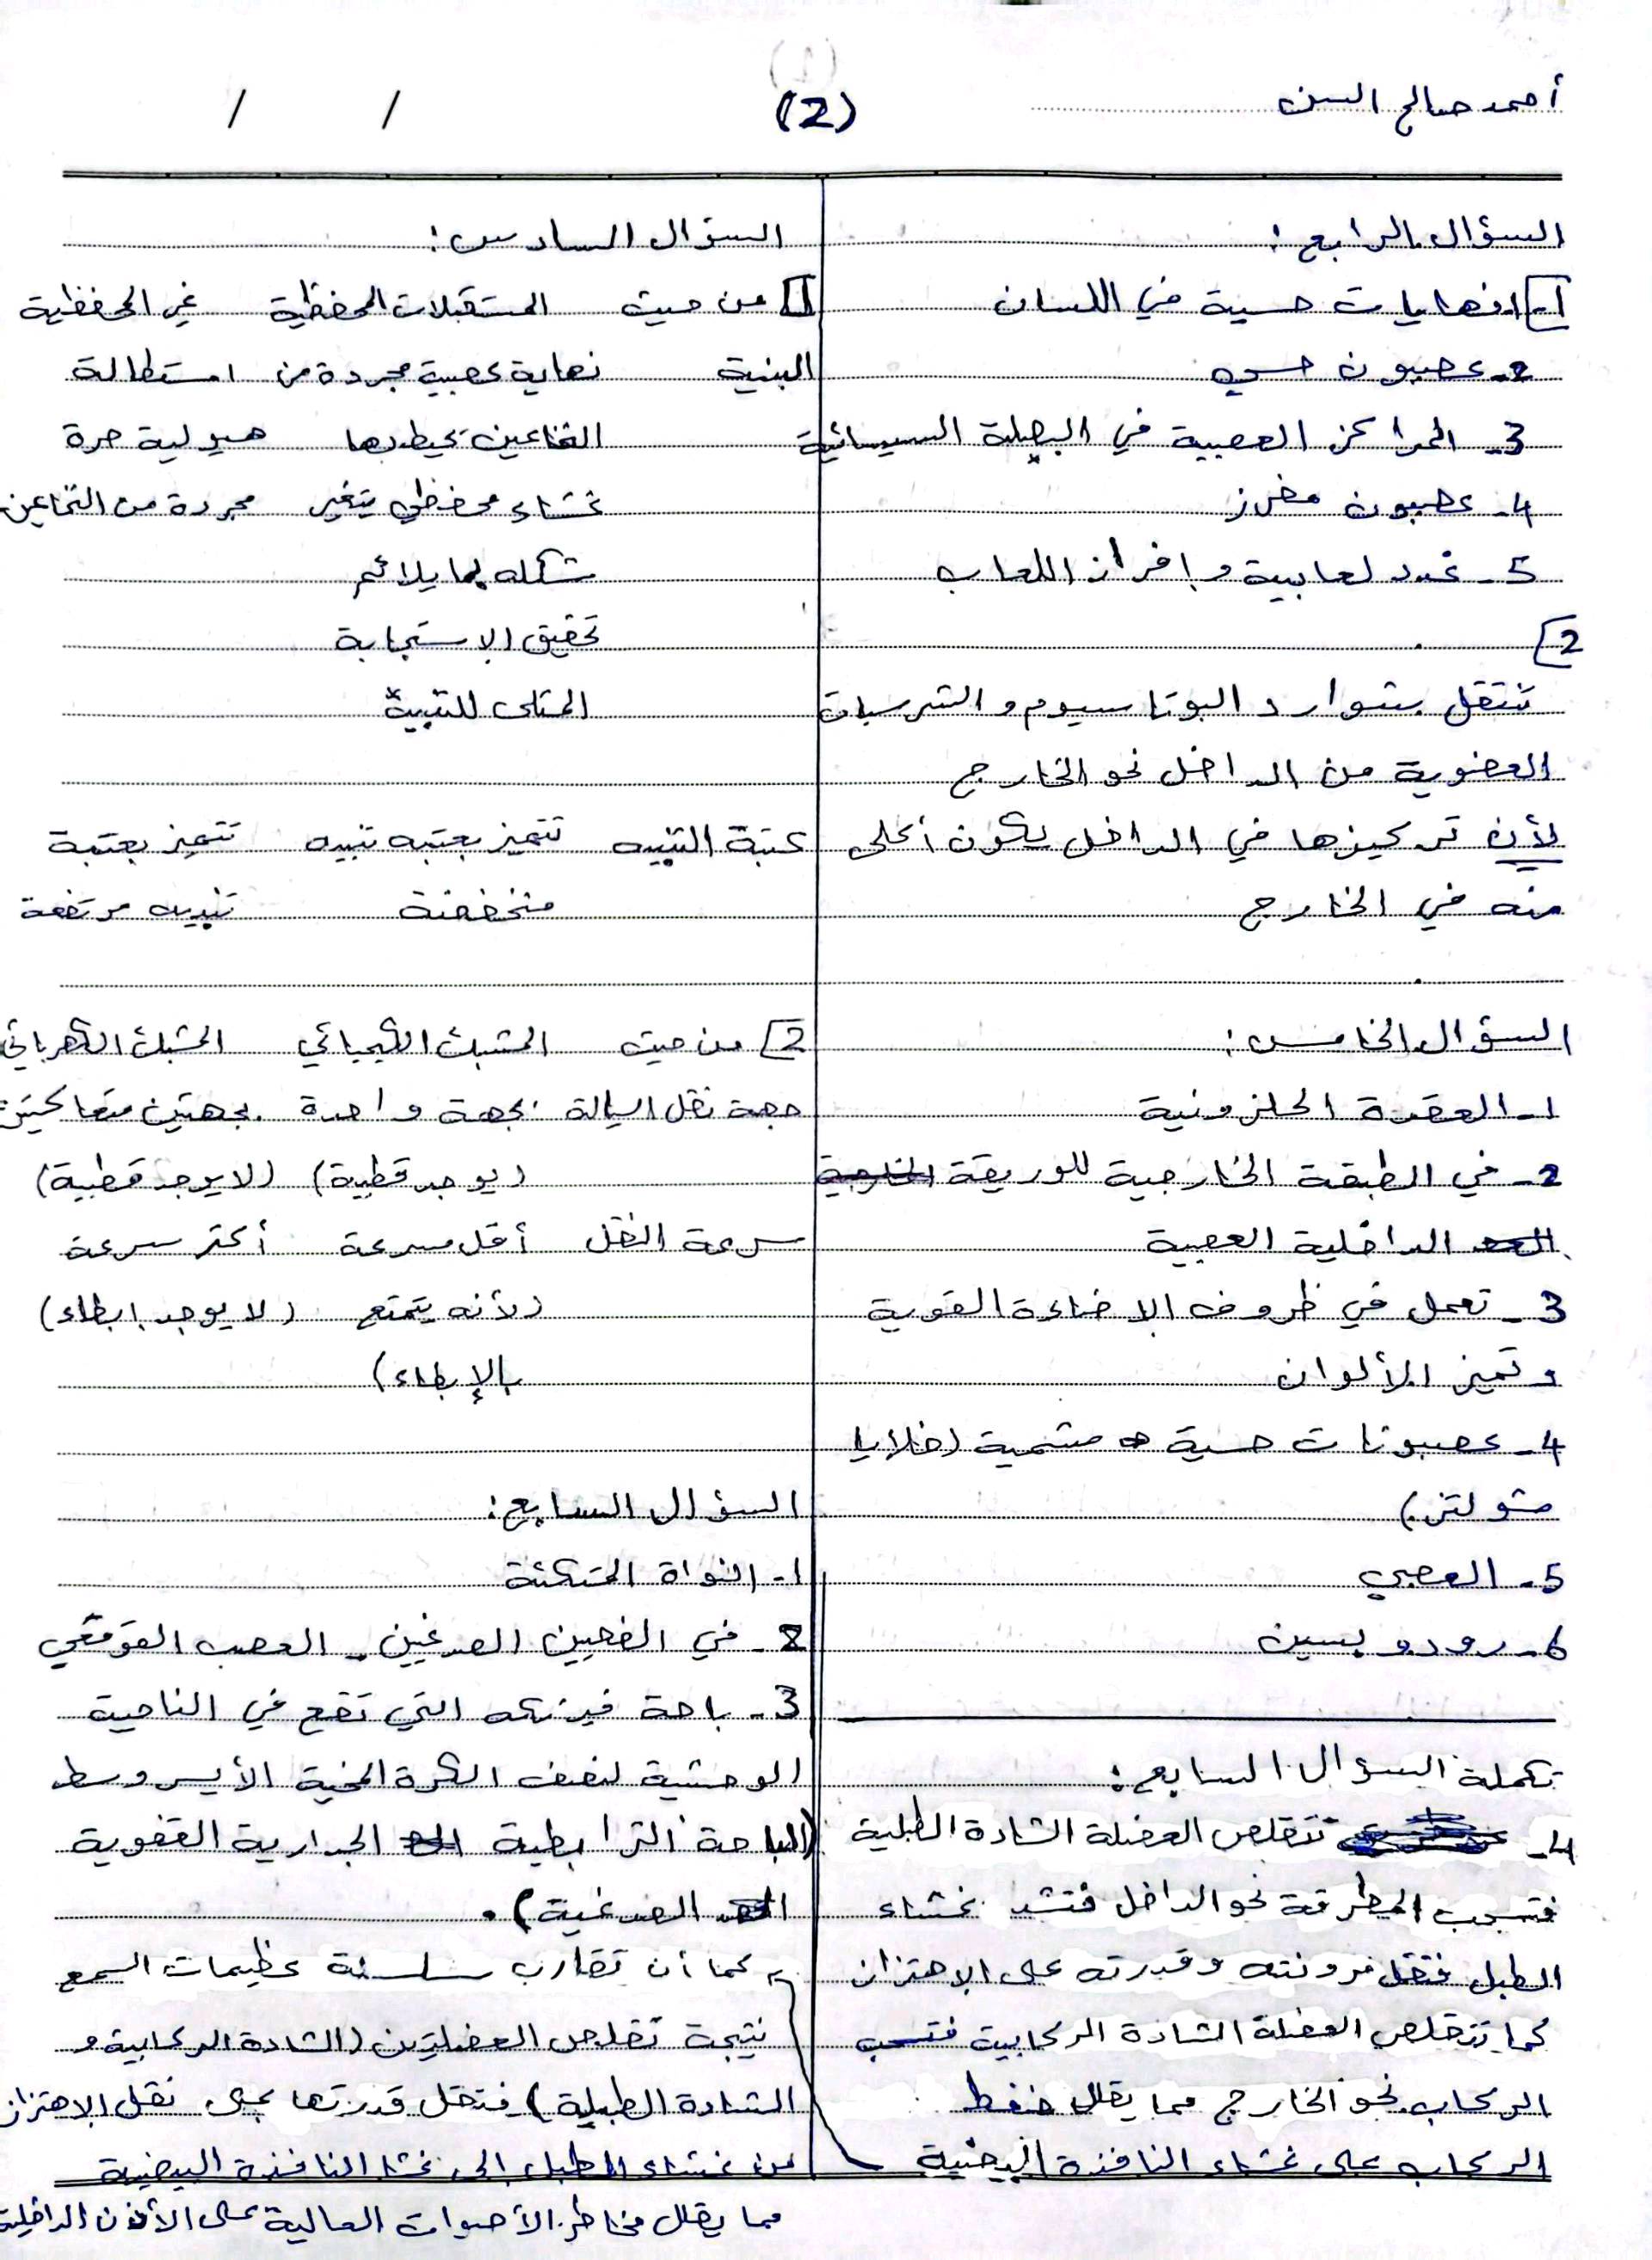 أحمد صالح السن
(1)
(2)
/ /
السؤال الرابع :
1- 1. نهايات حسية في اللسان
2- عصبون حسي
3- المراكز العصبية في البصلة السيسائية
4- عصبون مفرز
5- غدد لعابية وإفراز اللعاب
2
تنتقل بتوارد البوتاسيوم والشرسبات
العضوية من الداخل نحو الخارج
لأن تركيزها في الداخل يكون أعلى
منه في الخارج
السؤال الخامس :
1- العقدة الحلزونية
2- في الطبقة الخارجية للوريقة
الداخلية العصبية
3- تعمل في ظروف الإضاءة القوية
وتميز الألوان
4- عصبونات حسية متممية (خلايا
شولتز)
5- العصبي
6- رودوبسين
تكملة السؤال السابع :
4- تتقلص العضلة الشادة الطبلية
فتسحب المطرقة نحو الداخل فتشد غشاء
الطبل فتقل مرونته وقدرته على الاهتزاز
كما تتقلص العضلة الشادة الركابية فتسحب
الركاب نحو الخارج مما يقلل ضغط
الركاب على غشاء النافذة البيضية
السؤال السادس :
1 من حيث المستقبلات المحفظية غير المحفظية
البنية نهاية عصبية مجردة من استطالة
النخاعين يحيط بها هيولية حرة
غشاء محفظي يتغير مجردة من النخاعين
شكله بما يلائم
تحقيق الاستجابة
المثلى للتنبيه
عتبة التنبيه تتميز بعتبه تنبيه تتميز بعتبة
منخفضة تنبيه مرتفعة
2 من حيث المشبك الكيميائي المشبك الكهربائي
جهة نقل السيالة بجهة واحدة بجهتين متعاكستين
(يوجد قطبية) (لا يوجد قطبية)
سرعة النقل أقل سرعة أكثر سرعة
(لأنه يتمتع (لا يوجد إبطاء)
بالإبطاء)
السؤال السابع :
1- النواة المتكئة
2- في الفصين الصدغيين - العصب القوقعي
3- باحة فيرنكه التي تقع في الناحية
الوحشية لنصف الكرة المخية الأيسر وسط
(الباحة الترابطية الجدارية القفوية
الصدغية).
كما أن تقارب سلسلة عظيمات السمع
نتيجة تقلص العضليتين (الشادة الركابية و
الشادة الطبلية) فتقل قدرتها على نقل الاهتزاز
من غشاء الطبل إلى غشا النافذة البيضية
مما يقلل مخاطر الأصوات العالية على الأذن الداخلية